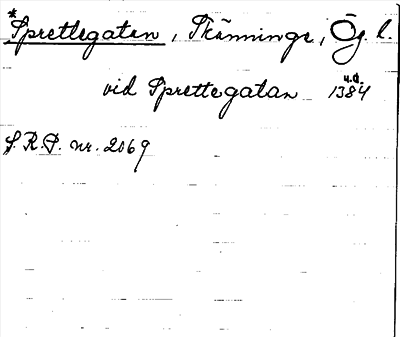 *Sprettegatan, Skänninge, Ög. l.
vid Sprettegatan u.d. 1384
S.R.P. nr. 2069